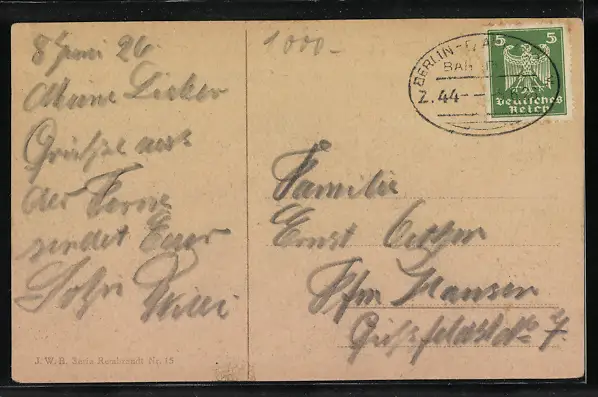 8 Juni 26
Meine Lieben
Grüsse aus
der Ferne
sendet Euer
Sohn Willi
J. W. B. Serie Rembrandt Nr. 15
1000-
BERLIN
BAH
Z. 44
5 5
Deutsches
Reich
Familie
Ernst
Hansen